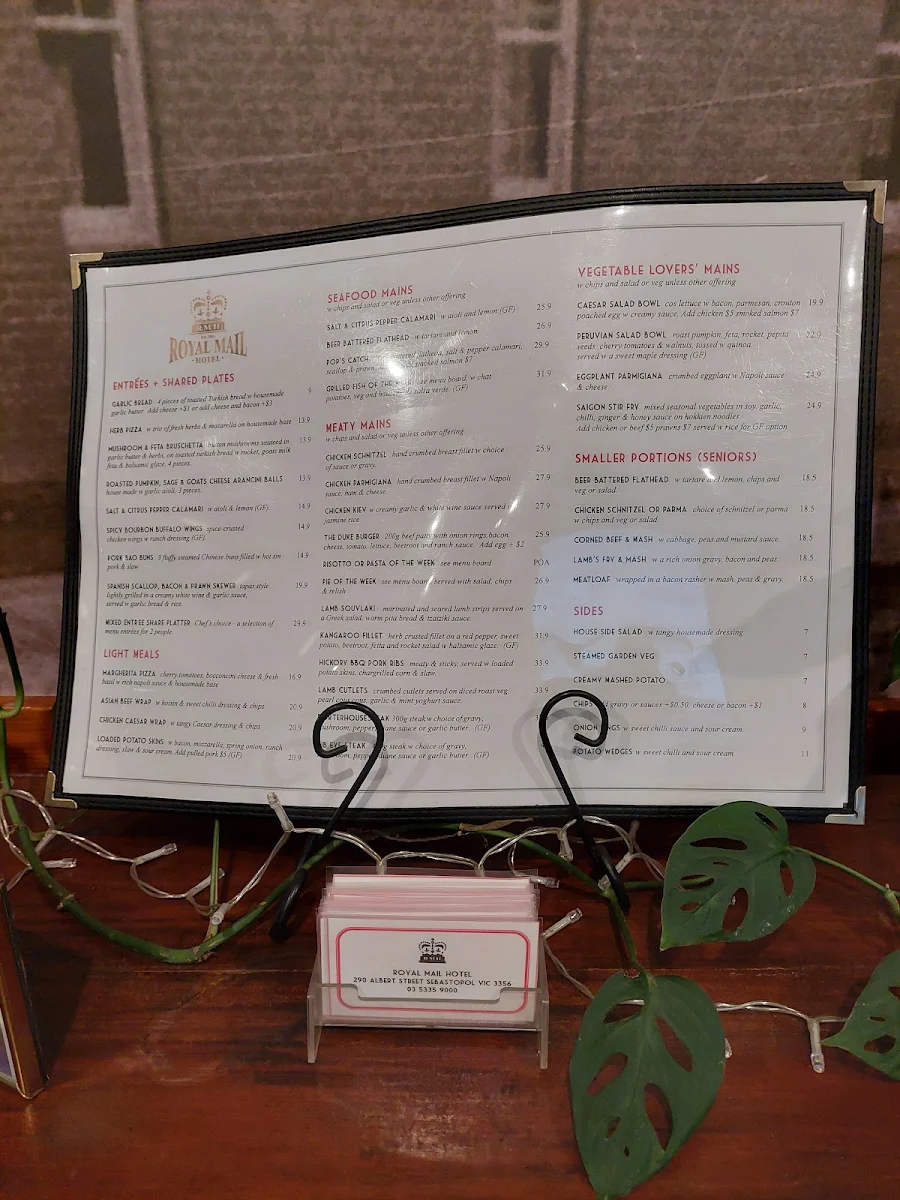 ROYAL MAIL
HOTEL
ENTRÉES + SHARED PLATES
GARLIC BREAD 4 pieces of toasted Turkish bread w housemade 9
garlic butter. Add cheese +$1 or add cheese and bacon +$3
HERB PIZZA w trio of fresh herbs & mozzarella on housemade base 13.9
MUSHROOM & FETA BRUSCHETTA button mushrooms sauteed in 13.9
garlic butter & herbs, on toasted turkish bread w rocket, goats milk
feta & balsamic glaze. 4 pieces.
ROASTED PUMPKIN, SAGE & GOATS CHEESE ARANCINI BALLS 13.9
house made w garlic aioli. 3 pieces.
SALT & CITRUS PEPPER CALAMARI w aioli & lemon (GF) 14.9
SPICY BOURBON BUFFALO WINGS spice-crusted 14.9
chicken wings w ranch dressing (GF)
PORK BAO BUNS 3 fluffy steamed Chinese buns filled w hot sin 14.9
pork & slaw
SPANISH SCALLOP, BACON & PRAWN SKEWER tapas style 19.9
lightly grilled in a creamy white wine & garlic sauce,
served w garlic bread & rice.
MIXED ENTREE SHARE PLATTER Chef's choice - a selection of 29.9
menu entrées for 2 people.
LIGHT MEALS
MARGHERITA PIZZA cherry tomatoes, bocconcini cheese & fresh 16.9
basil w rich napoli sauce & housemade base
ASIAN BEEF WRAP w hoisin & sweet chilli dressing & chips 20.9
CHICKEN CAESAR WRAP w tangy Caesar dressing & chips 20.9
LOADED POTATO SKINS w bacon, mozzarella, spring onion, ranch
dressing, slaw & sour cream. Add pulled pork $5 (GF) 20.9
SEAFOOD MAINS
w chips and salad or veg unless other offering
SALT & CITRUS PEPPER CALAMARI w aioli and lemon (GF) 25.9
BEER BATTERED FLATHEAD w tartare and lemon 26.9
POP'S CATCH battered flathead, salt & pepper calamari, 29.9
scallop & prawn smoked salmon $7
GRILLED FISH OF THE see menu board, w chat 31.9
potatoes, veg and salsa verde. (GF)
MEATY MAINS
w chips and salad or veg unless other offering
CHICKEN SCHNITZEL hand crumbed breast fillet w choice 25.9
of sauce or gravy.
CHICKEN PARMIGIANA hand crumbed breast fillet w Napoli 27.9
sauce, ham & cheese.
CHICKEN KIEV w creamy garlic & white wine sauce served w 27.9
jasmine rice
THE DUKE BURGER 200g beef patty with onion rings, bacon, 25.9
cheese, tomato, lettuce, beetroot and ranch sauce. Add egg + $2
RISOTTO OR PASTA OF THE WEEK see menu board POA
PIE OF THE WEEK see menu board, served with salad, chips 26.9
& relish
LAMB SOUVLAKI marinated and seared lamb strips served on 27.9
a Greek salad, warm pita bread & tzatziki sauce.
KANGAROO FILLET herb crusted fillet on a red pepper, sweet 31.9
potato, beetroot, fetta and rocket salad w balsamic glaze. (GF)
HICKORY BBQ PORK RIBS meaty & sticky, served w loaded 33.9
potato skins, chargrilled corn & slaw.
LAMB CUTLETS crumbed cutlets served on diced roast veg, 33.9
pearl cous cous, garlic & mint yoghurt sauce.
300g steak w choice of gravy,
mushroom, pepper, diane sauce or garlic butter. (GF)
EYE STEAK steak w choice of gravy,
diane sauce or garlic butter. (GF)
VEGETABLE LOVERS' MAINS
w chips and salad or veg unless other offering
CAESAR SALAD BOWL cos lettuce w bacon, parmesan, crouton 19.9
poached egg w creamy sauce. Add chicken $5 smoked salmon $7
PERUVIAN SALAD BOWL roast pumpkin, feta, rocket, pepita 22.9
seeds, cherry tomatoes & walnuts, tossed w quinoa,
served w a sweet maple dressing (GF)
EGGPLANT PARMIGIANA crumbed eggplant w Napoli sauce 24.9
& cheese
SAIGON STIR FRY mixed seasonal vegetables in soy, garlic, 24.9
chilli, ginger & honey sauce on hokkien noodles
Add chicken or beef $5 prawns $7 served w rice for GF option
SMALLER PORTIONS (SENIORS)
BEER BATTERED FLATHEAD w tartare and lemon, chips and 18.5
veg or salad
CHICKEN SCHNITZEL OR PARMA choice of schnitzel or parma 18.5
w chips and veg or salad
CORNED BEEF & MASH w cabbage, peas and mustard sauce. 18.5
LAMB'S FRY & MASH w a rich onion gravy, bacon and peas. 18.5
MEATLOAF wrapped in a bacon rasher w mash, peas & gravy. 18.5
SIDES
HOUSE SIDE SALAD w tangy housemade dressing 7
STEAMED GARDEN VEG 7
CREAMY MASHED POTATO 7
CHIPS gravy or sauces +$0.50, cheese or bacon +$1 8
ONION w sweet chilli sauce and sour cream 9
POTATO WEDGES w sweet chilli and sour cream 11
ROYAL MAIL HOTEL
290 ALBERT STREET SEBASTOPOL VIC 3356
03 5335 9000